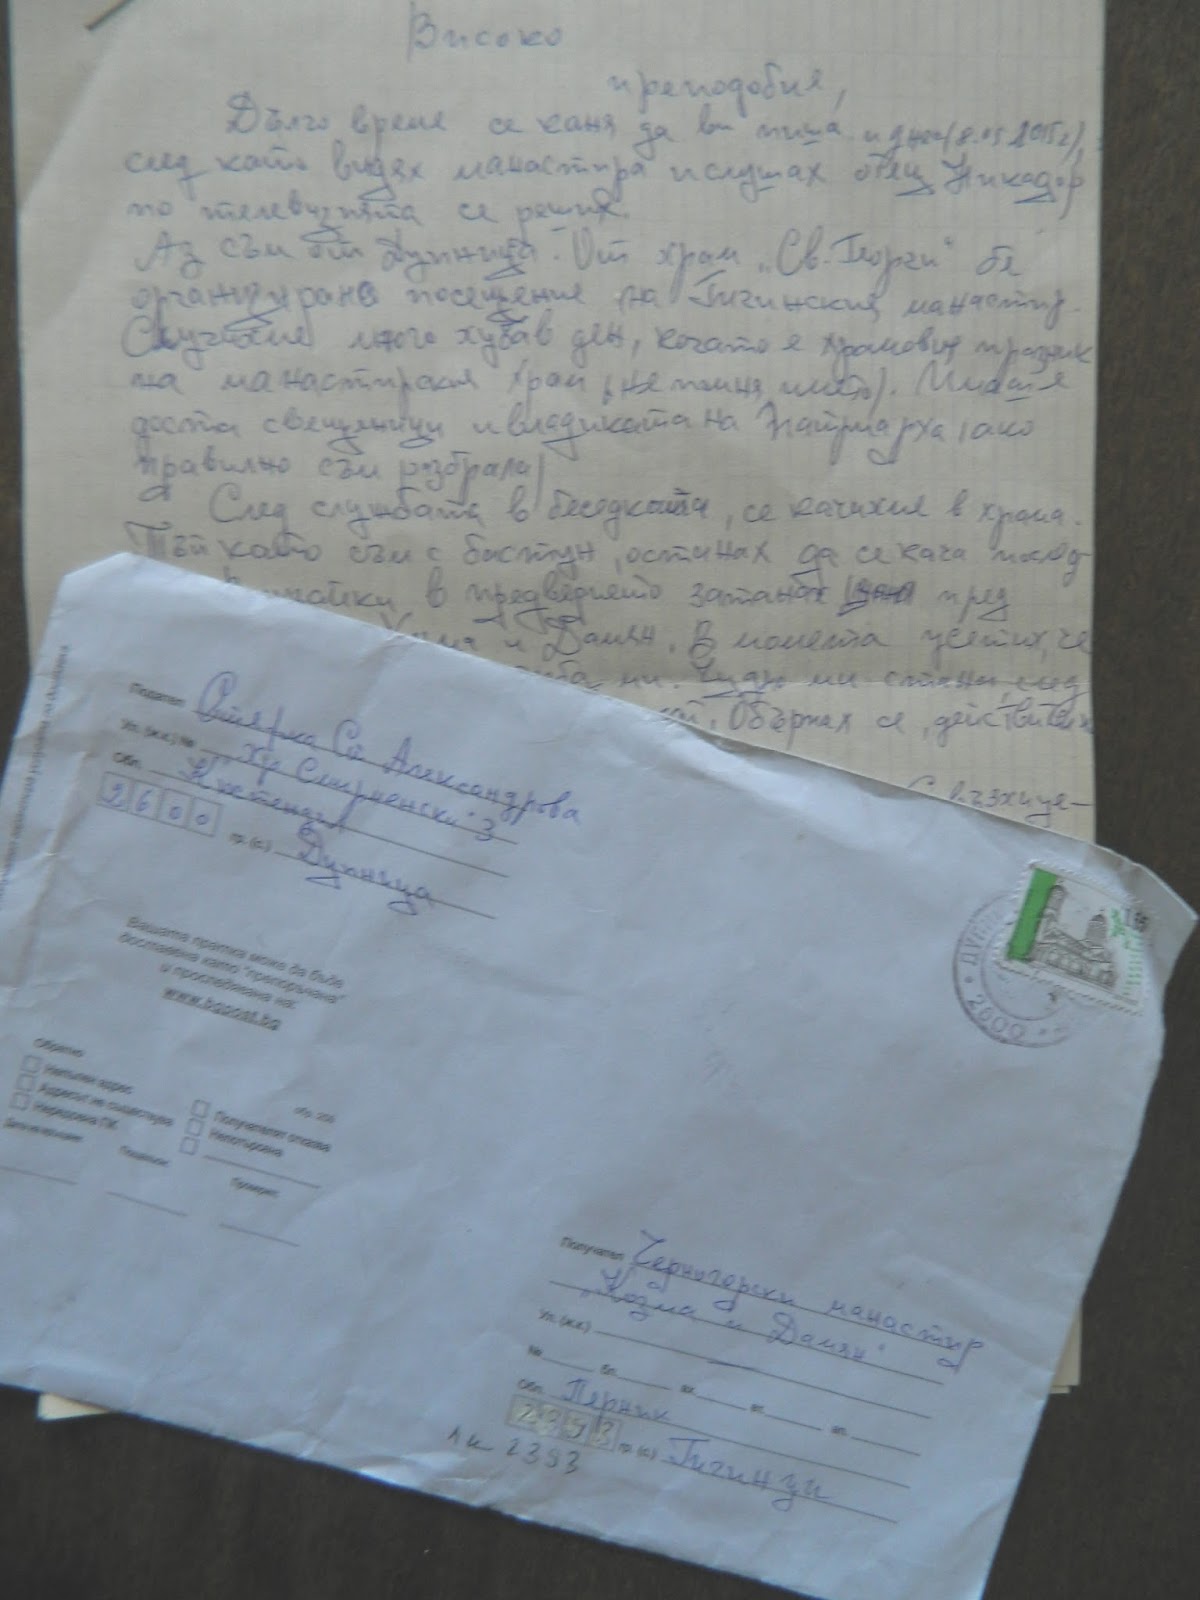 Високо
преподобия,
Дълго време се каня да ви пиша и днес (8.05.2015г),
след като видях манастира и слушах отец Никанор
по телевизията се реших.
Аз съм от Дупница. От храм „Св. Георги" бе
организирано посещение на Гигинския манастир.
Случихме много хубав ден, когато е храмовия празник
на манастирския храм (не помня името). Имаше
доста свещеници и владиката на Патриарха, ако
правилно съм разбрала
След службата в беседката, се качихме в храма.
Тъй като съм с бастун, останах да се кача послед
в предверието застанах пред
и Дамян. В момента усетих, че
ми. Чудно ми стана, след
Обърнах се, действител
С възхище-
Подател Александрова
Ул. (ж.к.) № "Хр Смирненски" 3
Обл. Кюстендил
2600 гр. (с.) Дупница
Вашата пратка може да бъде
доставена като "препоръчана"
и проследявана на:
www.bgpost.bg
Обратно
Непълен адрес
Адресът не съществува
Получателят отказва
Непотърсена
ДУПНИЦА
2600
Получател Чернигорски манастир
"Козма и Дамян"
Ул. (ж.к.)
№ бл. вх. ет. ап.
Обл. Перник
гр. (с.) Гигинци
2393